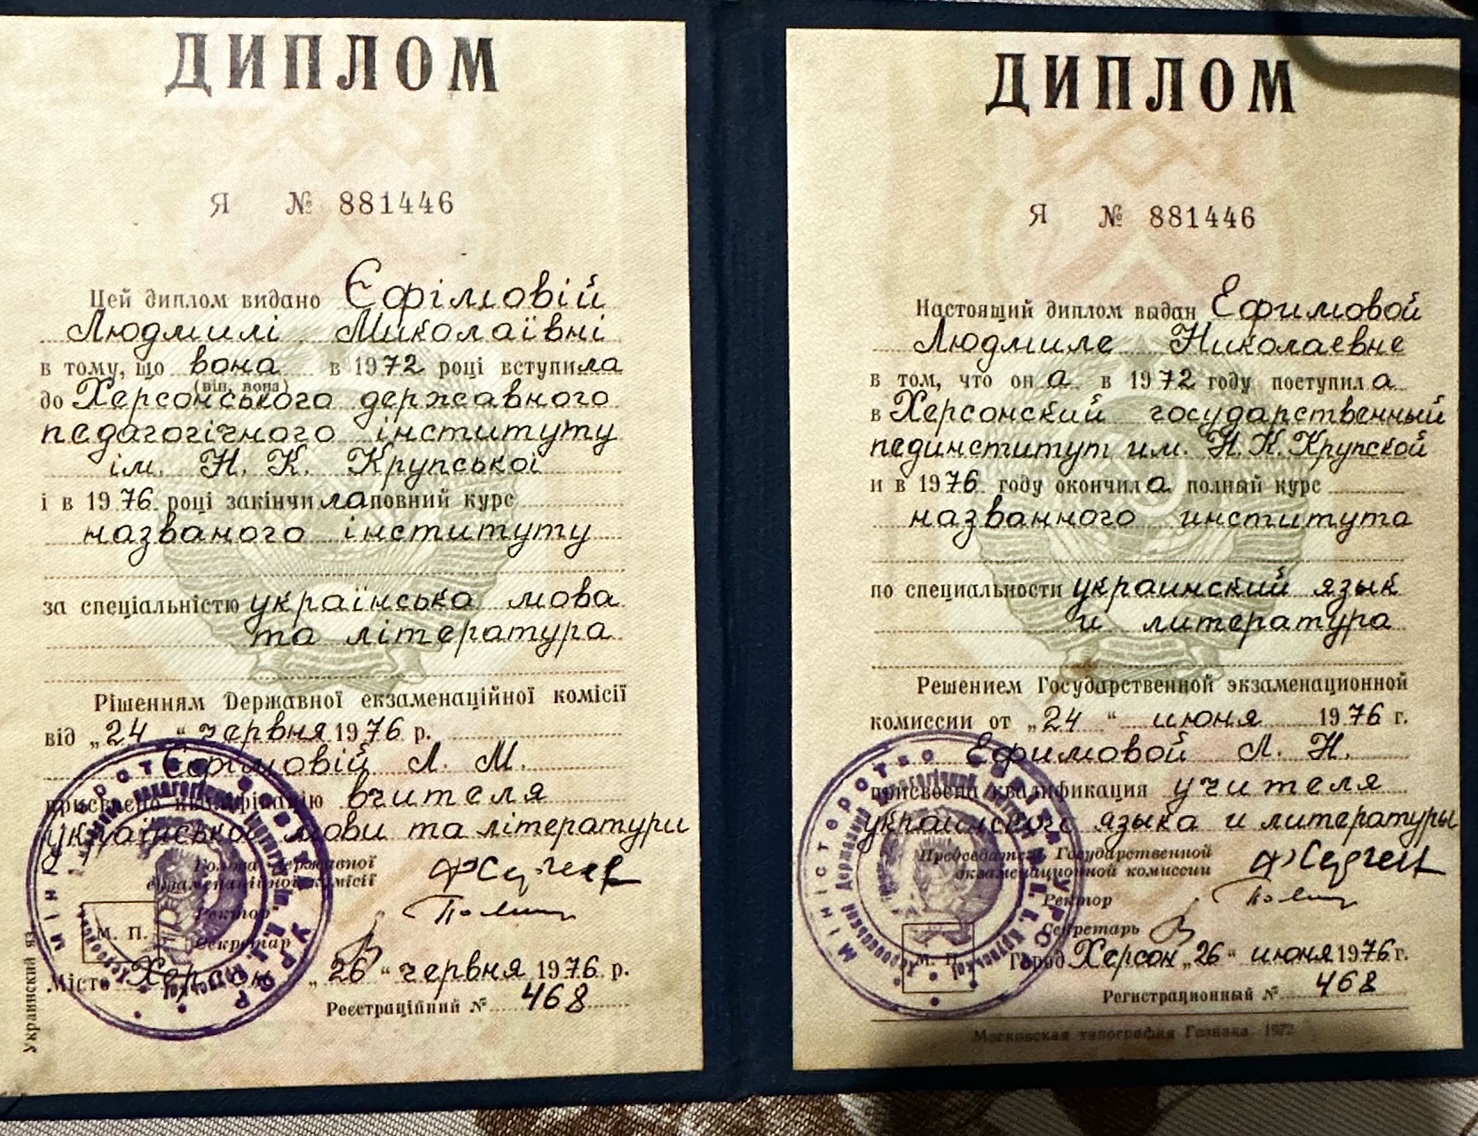 ДИПЛОМ
Я № 881446
Цей диплом видано Єфімовій
Людмилі Миколаївні
в тому, що вона в 1972 році вступила
(він, вона)
до Херсонського державного
педагогічного інституту
ім. Н. К. Крупської
і в 1976 році закінчила повний курс
названого інституту
за спеціальністю українська мова
та література
Рішенням Державної екзаменаційної комісії
від „24“ червня 1976 р.
Єфімовій Л. М.
присвоєно кваліфікацію вчителя
української мови та літератури
Голова Державної
екзаменаційної комісії
Ректор
Секретар
М. П.
Місто Херсон „26“ червня 1976 р.
Реєстраційний № 468
Украинский яз
ДИПЛОМ
Я № 881446
Настоящий диплом выдан Ефимовой
Людмиле Николаевне
в том, что она в 1972 году поступила
в Херсонский государственный
пединститут им. Н. К. Крупской
и в 1976 году окончила полный курс
названного института
по специальности украинский язык
и литература
Решением Государственной экзаменационной
комиссии от „24“ июня 1976 г.
Ефимовой Л. Н.
присвоена квалификация учителя
украинского языка и литературы
Председатель Государственной
экзаменационной комиссии
Ректор
Секретарь
М. П.
Город Херсон „26“ июня 1976 г.
Регистрационный № 468
Московская типография Гознака. 1972